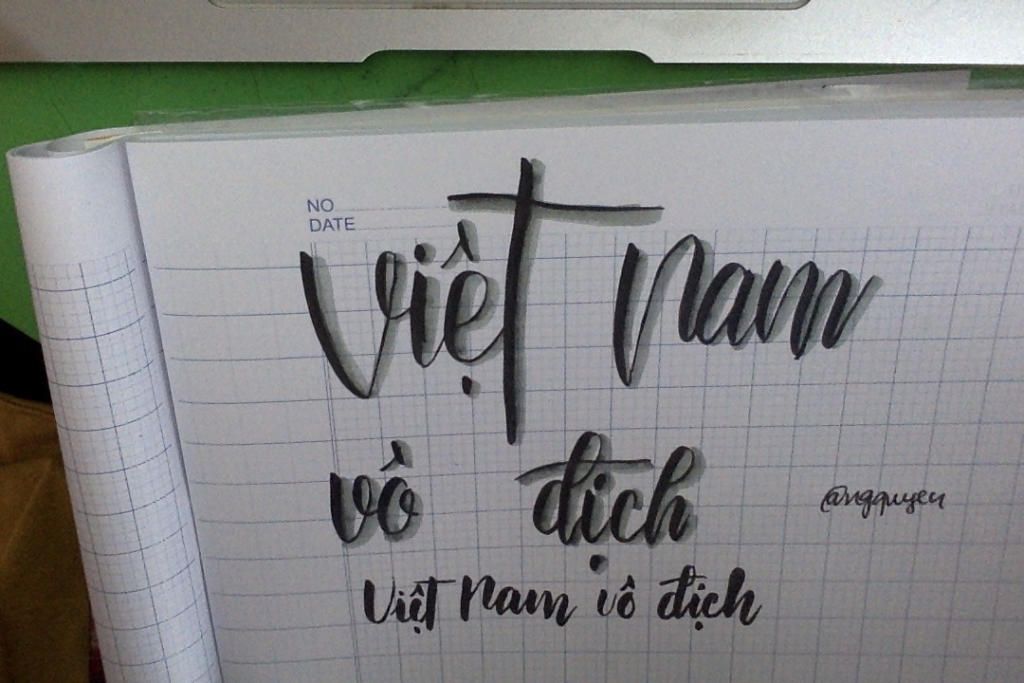 NO
DATE
Việt Nam
vô địch
@ngquyen
Việt Nam vô địch